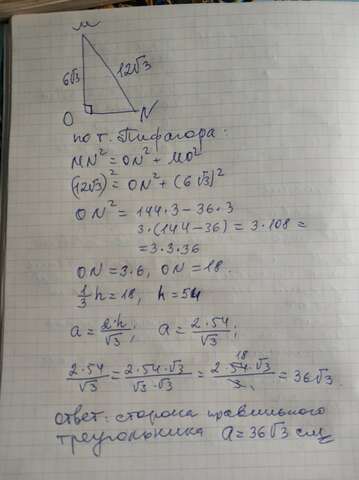 M
6√3
12√3
O
N
по т. Пифагора:
MN² = ON² + MO²
(12√3)² = ON² + (6√3)²
ON² = 144·3 - 36·3
3·(144-36) = 3·108 =
= 3·3·36
ON = 3·6, ON = 18.
1/3 h = 18, h = 54
a = 2·h/√3; a = 2·54/√3;
2·54/√3 = 2·54·√3/√3·√3 = 2·54·√3/3 18 = 36√3.
Ответ: сторона правильного
треугольника a = 36√3 см